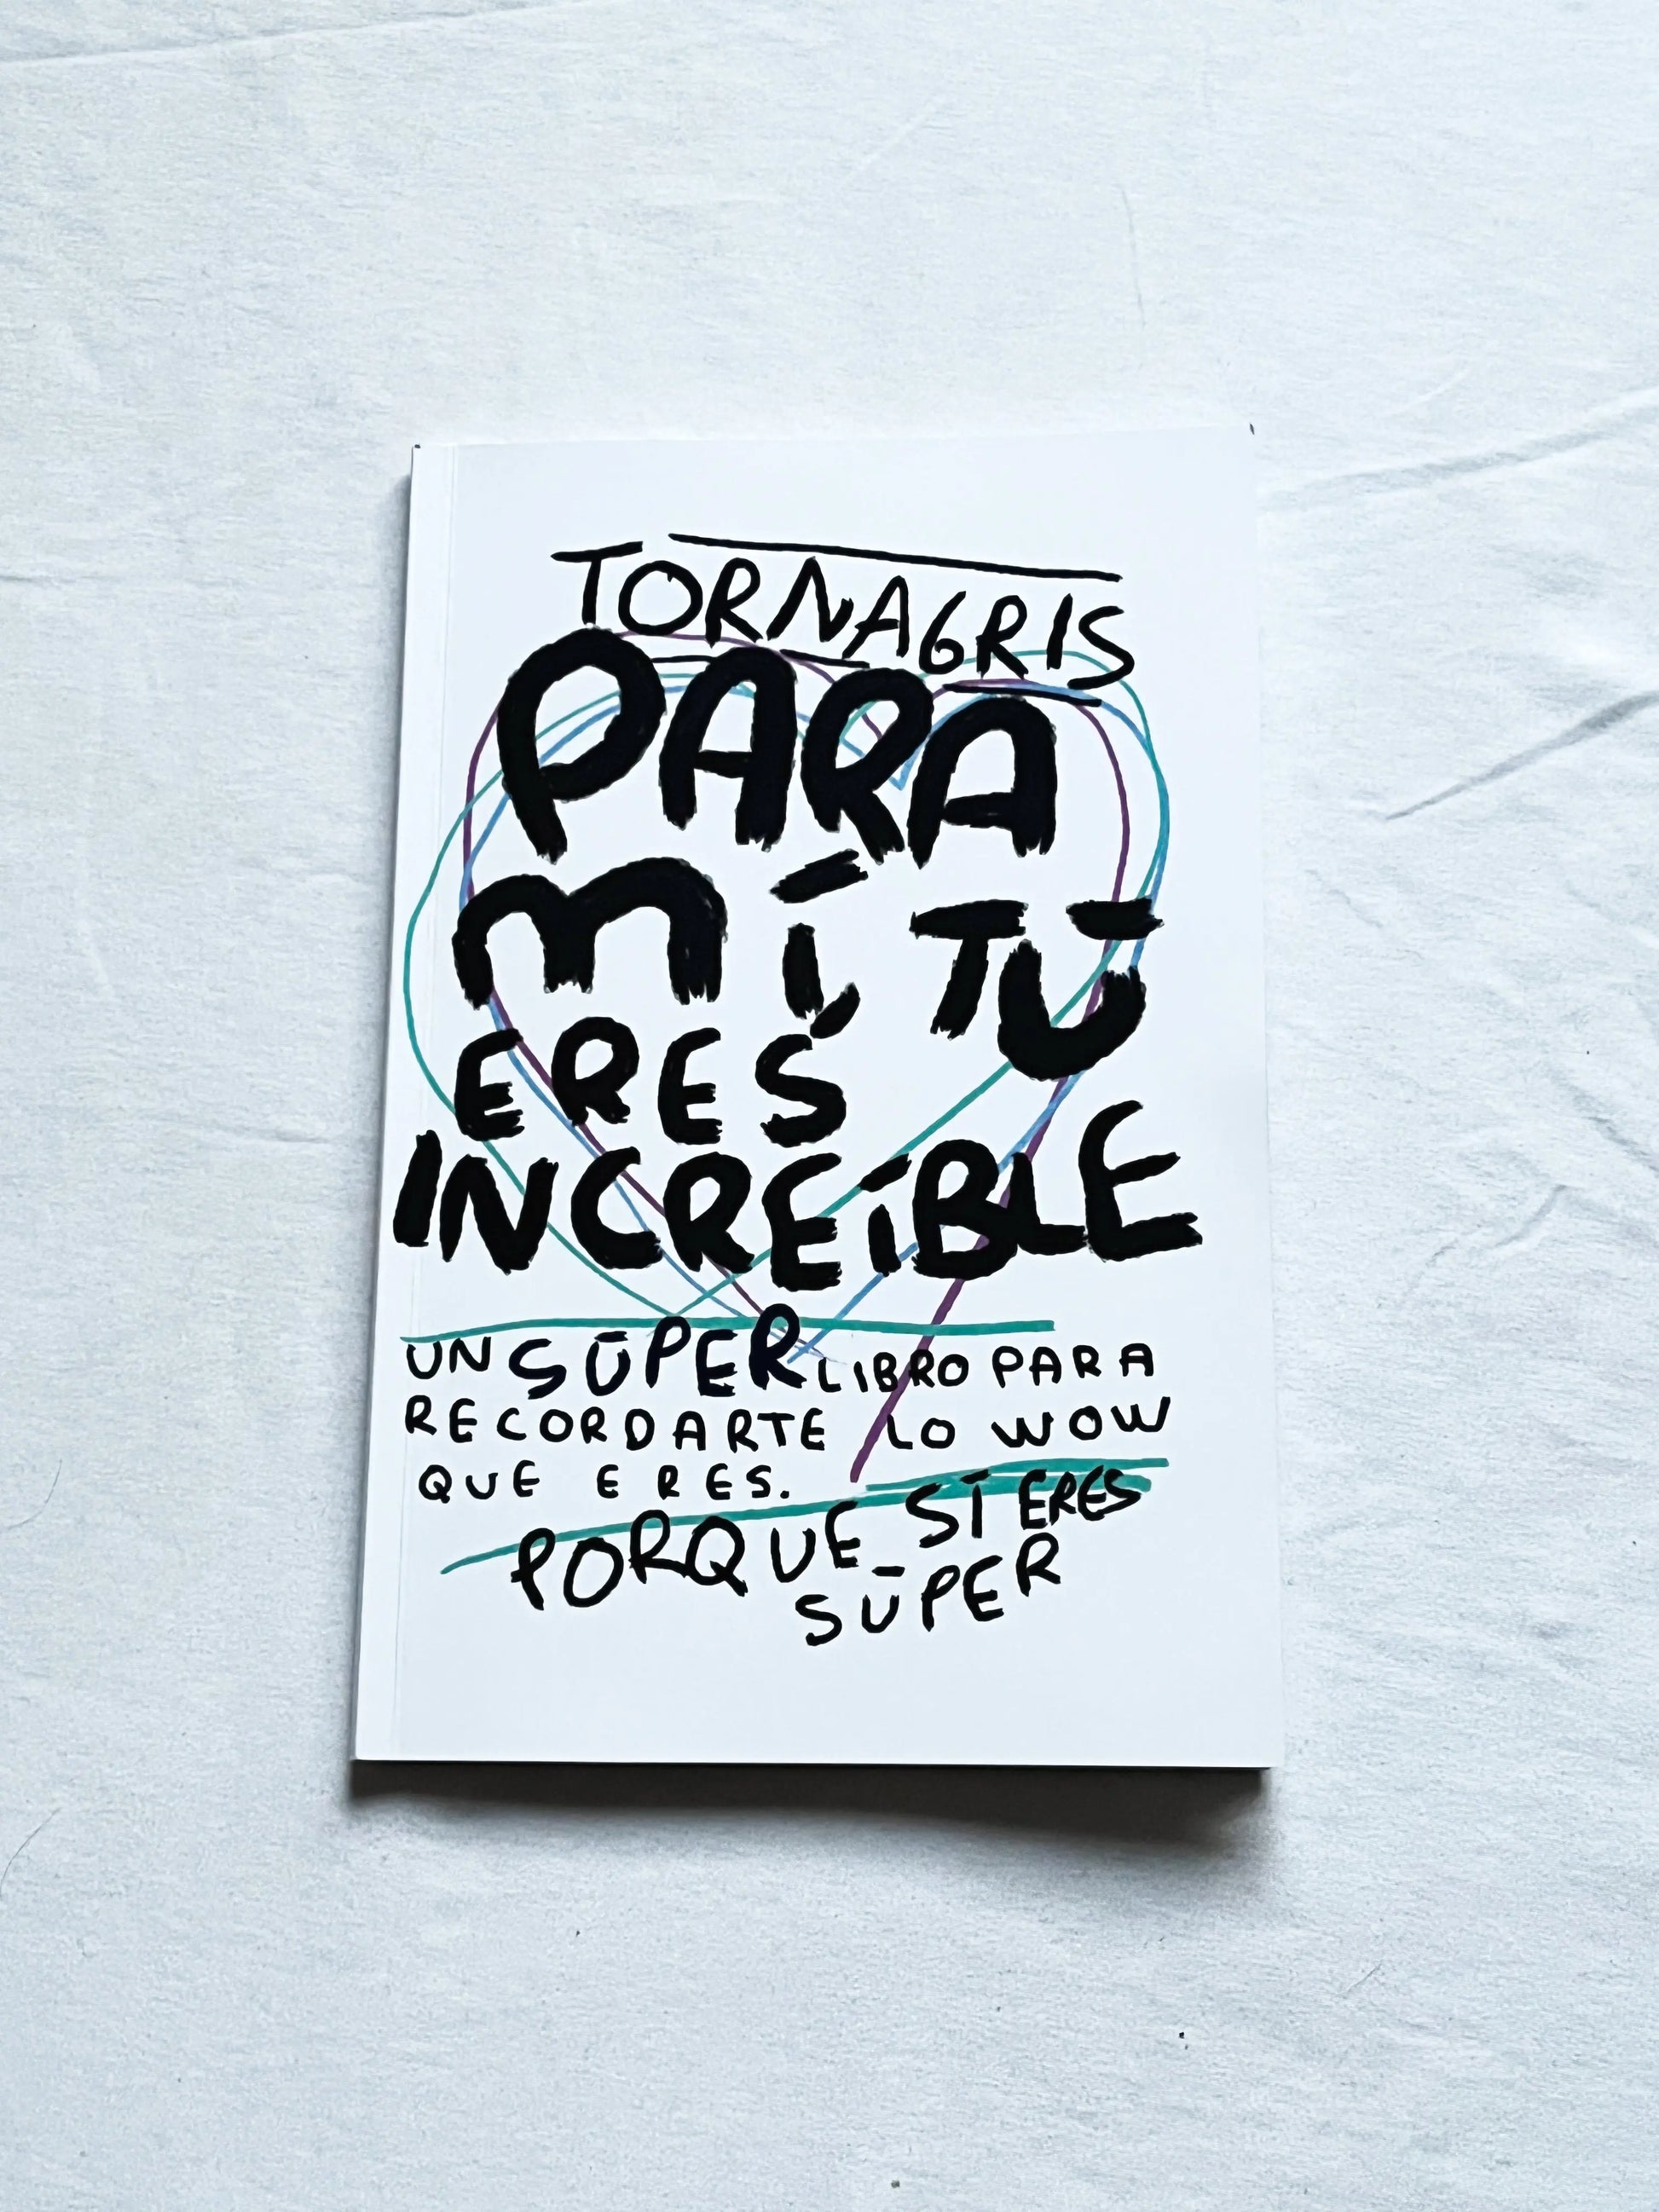 TORNAGRIS
PARA
MÍ TÚ
ERES
INCREÍBLE
UN SÚPER LIBRO PARA
RECORDARTE LO WOW
QUE ERES.
PORQUE SÍ ERES
SÚPER